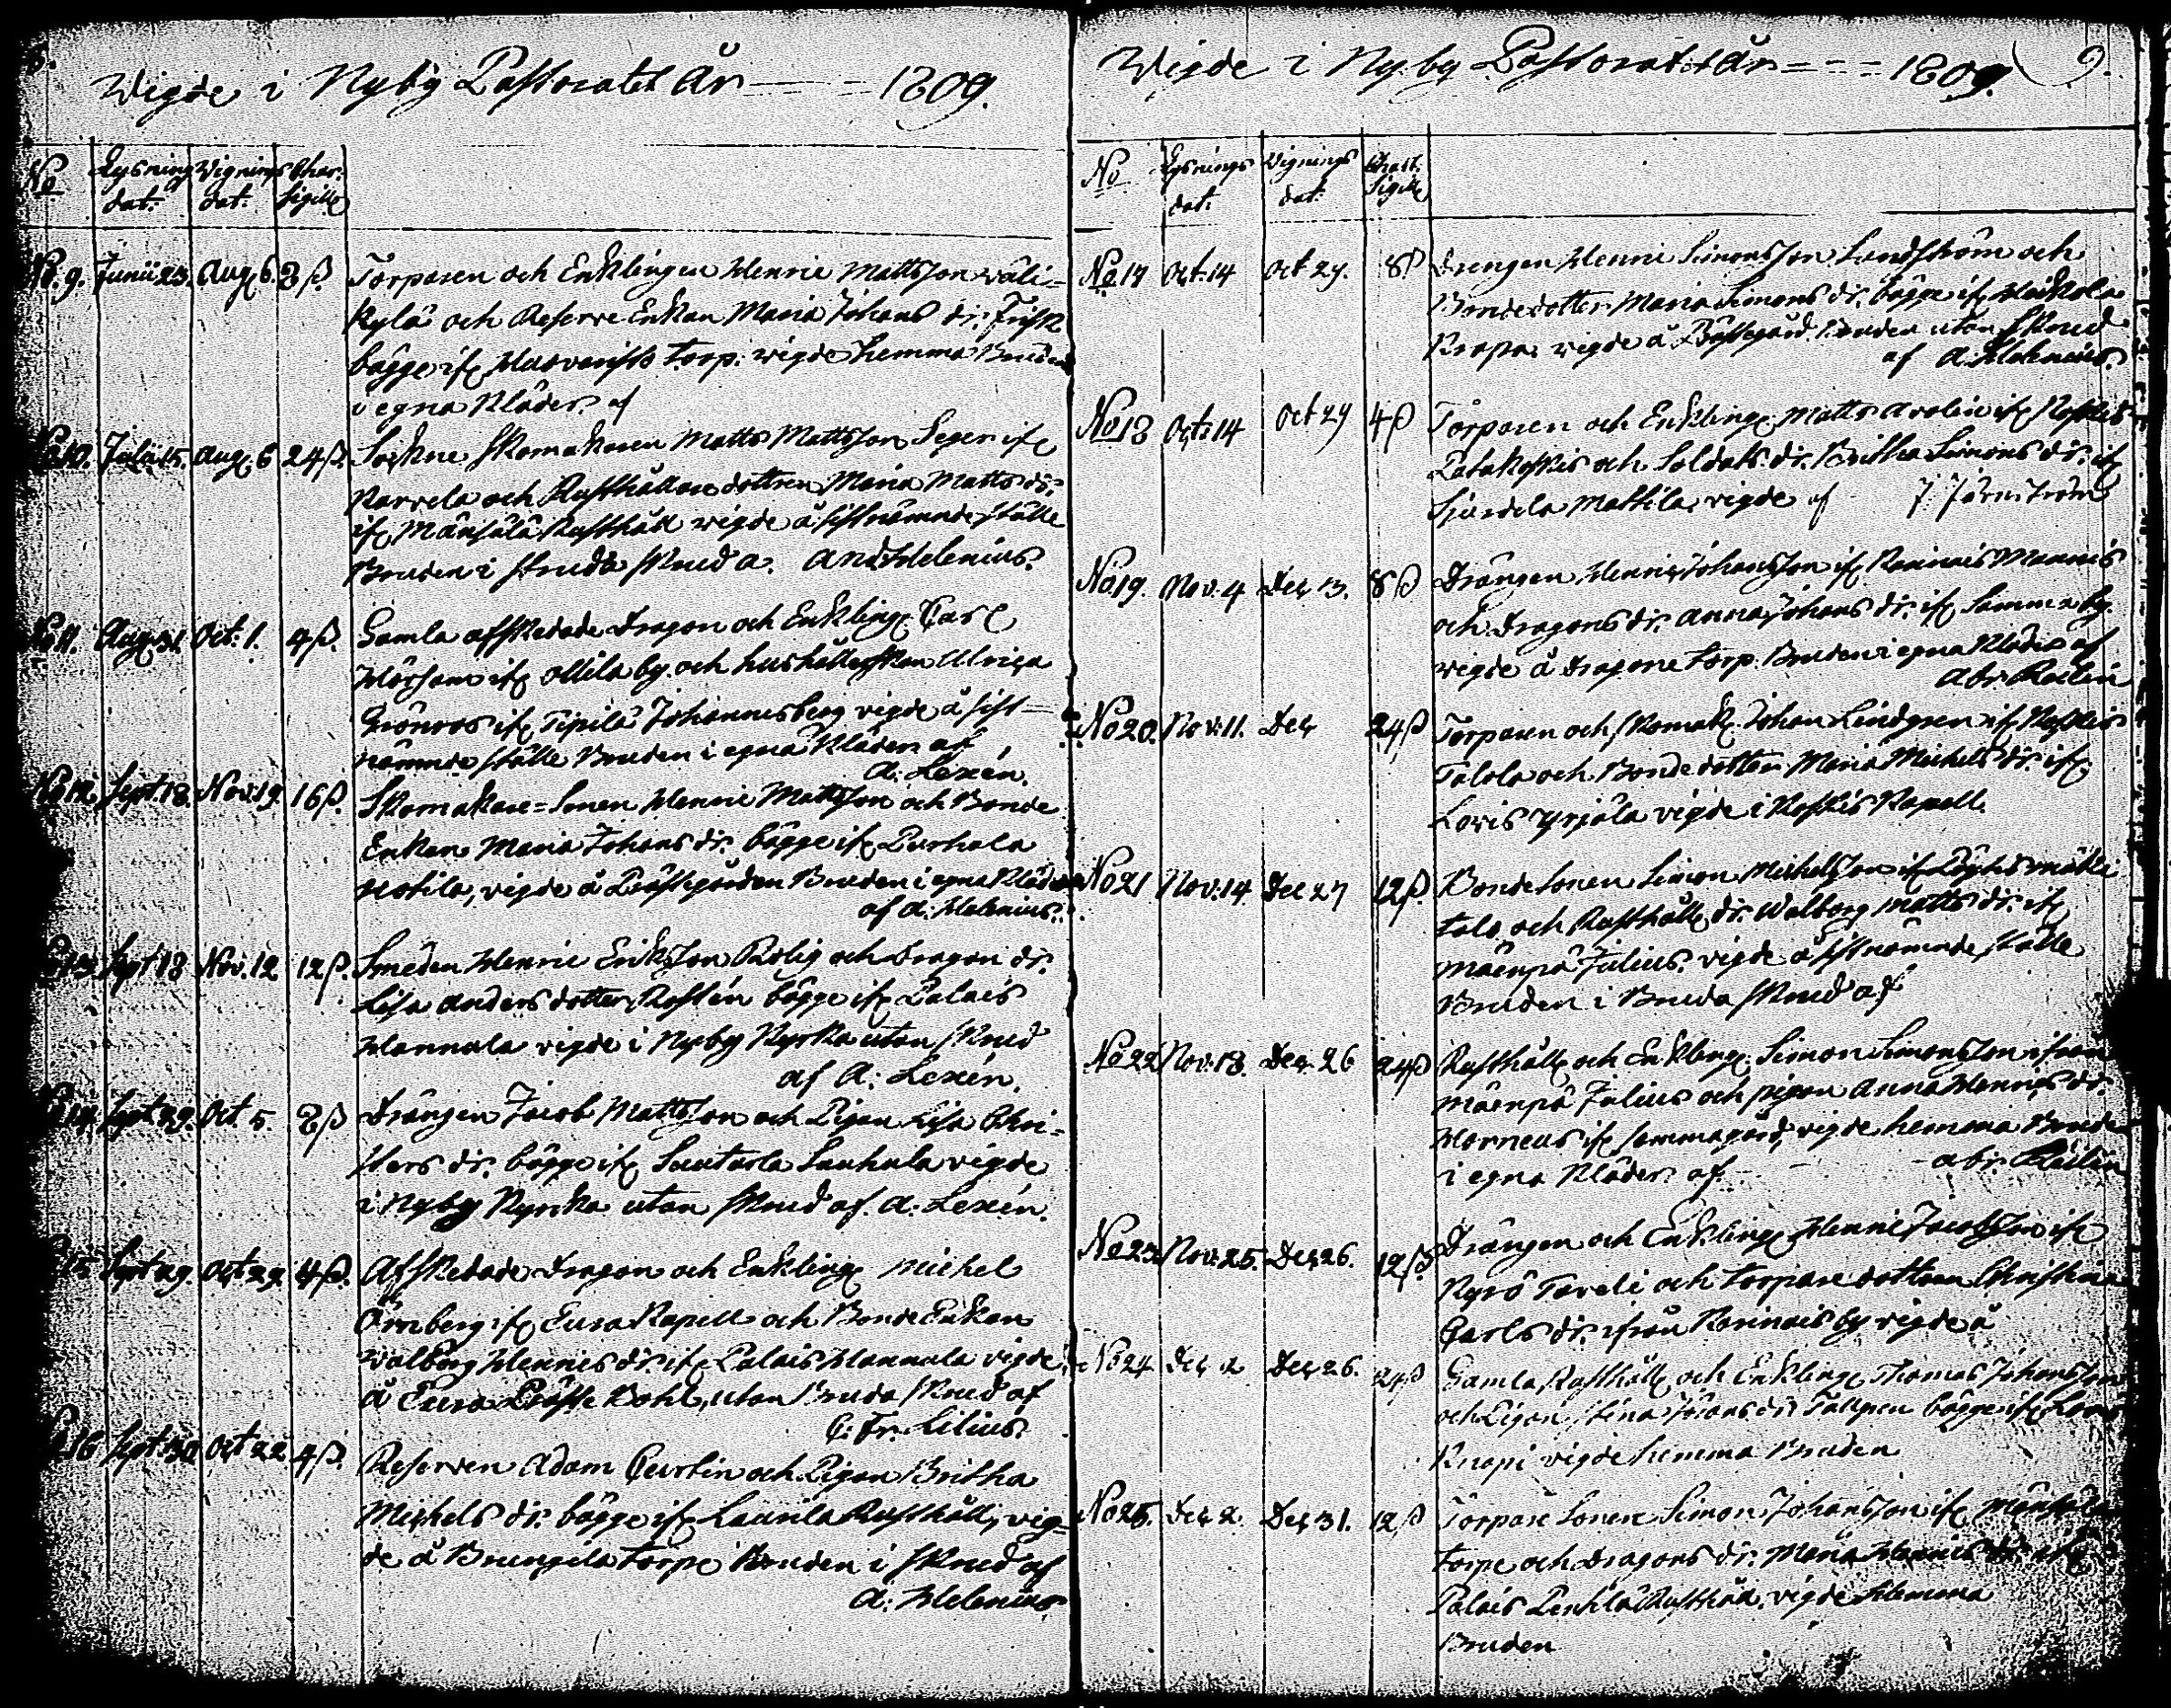 Wigde i Nyby Pastoratet År - - - 1809.
No | Lysnings dat: | Wignings dat: | Char: Sigill
No. 9. Junii 23. Aug. 6. 8 ß. Torparen och Enklingen Henric Mattsson Wäli-
kylä och Reserve Enkan Maria Johans dr. Frisk
bägge if. torp. wigde hemma Bruden
i egna Kläder af
Julii 15. Aug. 6 24 ß. Sockne Skomakaren Matts Mattsson Seger if.
Karvela och Rusthållare dottren Maria Matts dr.
if. Mänsälä Rusthåll wigde å sistnämnde ställe
Bruden i skrud a. And. Helenius.
No 11. Aug. 31. Oct. 1. 4 ß. Gamla afskedade Dragon och Enkling. Carl
if. Ollila by. och hushållerskan Ulrica
Grönroos if. Pipilä Johannesberg vigde å sist-
nämnde ställe Bruden i egna Kläder af
A. Lexén.
No 12. Sept. 18. Nov. 19. 16 ß. Skomakare-Sonen Henric Mattsson och Bonde
Enkan Maria Johans dr. bägge if. Purhala
Uotila, vigde å Prästegården Bruden i egna Kläder
af A. Helenius.
Sept 18 Nov. 12 12 ß. Smeden Henric Eriksson Rolig och Dragon dr.
Lisa Anders dotter Roslén bägge if. Palais
Hannula vigde i Nyby Kyrka utan skrud
af A: Lexén.
Sept 29. Oct. 5. 8 ß Drängen Jacob Mattsson och Pigan Lisa Chri-
sters dr. bägge if. Sauhula vigde
i Nyby Kyrka utan skrud af. A: Lexén.
15 Sept 29. Oct 29 4 ß. Afskedade Dragon och Enkling. Michel
Örnberg if. Eura Kapell och Bonde Enkan
Walborg Henrics dr. if. Palais Hannula vigde
å Eura Präste Bohl, utan Bruda skrud af
C: Fr. Lilius.
16 Sept 30 Oct 22 4 ß. Reserven Adam Curtin och Pigan Britha
Michels dr. bägge if. Laurila Rusthåll, vig-
de å Brungila torpe Bruden i skrud af
A: Helenius
Wigde i Nyby Pastoratet År - - - 1809. 9.
No | Lysnings dat. | Wignings dat. | Chart. Sigill
No 17 Oct. 14 Oct 29. 8 ß Drengen Henric Simonsson Landström och
Bondedotter Maria Simons dr. bägge if. Heikola
vigde å Prästegård. Bruden utan skrud
af A. Helenius.
No 18 Oct. 14 Oct 29 4 ß Torparen och Enkling. Matts Avolin if. Koskis
Patakoskis och Soldats dr. Britha Simons dr. if.
Sjärdela Mattila, vigde af J. Järnström
No 19. Nov. 4 Dec. 13. 8 ß Drängen Henric Johansson if. Karinais Mannis
och Dragons dr. Anna Johans dr. if. Samma by.
wigde å Dragone torp. Bruden i egna Kläder af
Abr. Roslin
No 20. Nov: 11. Dec 24 ß Torparen och Skomak. Johan Lindgren if. Koskis
Talola och Bonde dotter Maria Michels dr. if.
Loris Yrjälä vigde i Koskis Kapell
No 21 Nov. 14 Dec 27 12 ß. Bonde Sonen Simon Michelsson if.
talo och Rusthåll. dr. Walborg Matts dr. if.
Mäenpä Julius. vigde å sistnämnde ställe
Bruden i Bruda skrud af
No 22 Nov: 18. Dec. 26 24 ß Rusthåll. och Enkling. Simon Simonsson ifrån
Mäenpä Julius och pigan Anna Henrics dr.
Horneus if. samma gård, vigde hemma Bruden
i egna Kläder af - - Abr. Roslin
No 23. Nov: 25. Dec 26. 12 ß. Drängen och Enkling. Henric Jacobsson if.
Kyrö Taveli och torpare dottren Christina
Carls dr. ifrån Karinais by vigde å
No 24 Dec. 2 Dec 26. 24 ß Gamla Rusthåll. och Enkling. Thomas Johansson
och Pigan Stina Johans dr Tallgren bägge if. Loris
Knapi vigde hemma Bruden
No 25. Dec. 2. Dec 31. 12 ß Torpare Sonen Simon Johansson if. Mänsälä
torpe och Dragons dr. Maria Henrics dr. if.
Palais Penkilä Rusthåll. vigde Hemma
Bruden